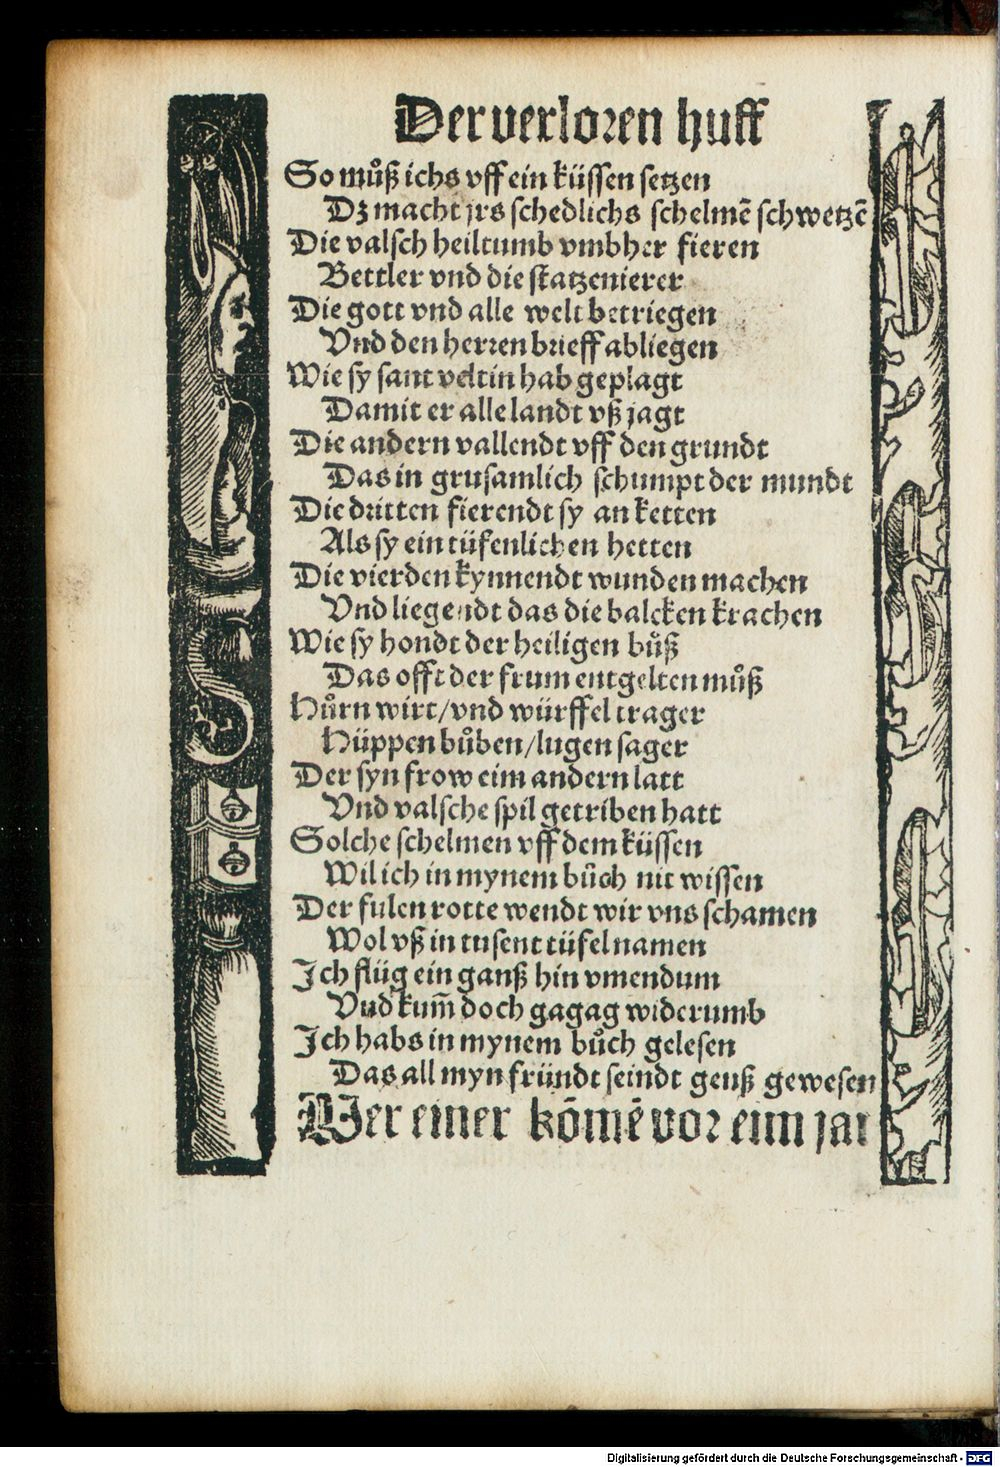 Der verloren huff
So můß ichs vff ein küssen setzen
Dz macht jrs schedlichs schelmē schwetzē
Die valsch heiltumb vmbher fieren
Bettler vnd die statzenierer
Die gott vnd alle welt betriegen
Vnd den herren brieff abliegen
Wie sy sant veltin hab geplagt
Damit er alle landt vß jagt
Die andern vallendt vff den grundt
Das in grusamlich schumpt der mundt
Die dritten fierendt sy an ketten
Als sy ein tüfenlichen hetten
Die vierden kynnendt wunden machen
Vnd liegendt das die balcken krachen
Wie sy hondt der heiligen bůß
Das offt der frum entgelten můß
Hůrn wirt/vnd würffel trager
Hüppen bůben/lugen sager
Der syn frow eim andern latt
Vnd valsche spil getriben hatt
Solche schelmen vff dem küssen
Wil ich in mynem bůch nit wissen
Der fulen rotte wendt wir vns schamen
Wol vß in tusent tüfel namen
Ich flüg ein ganß hin vmendum
Vnd kum̄ doch gagag widerumb
Ich habs in mynem bůch gelesen
Das all myn fründt seindt genß gewesen
Wer einer kōmē vor eim jar
Digitalisierung gefördert durch die Deutsche Forschungsgemeinschaft - DFG